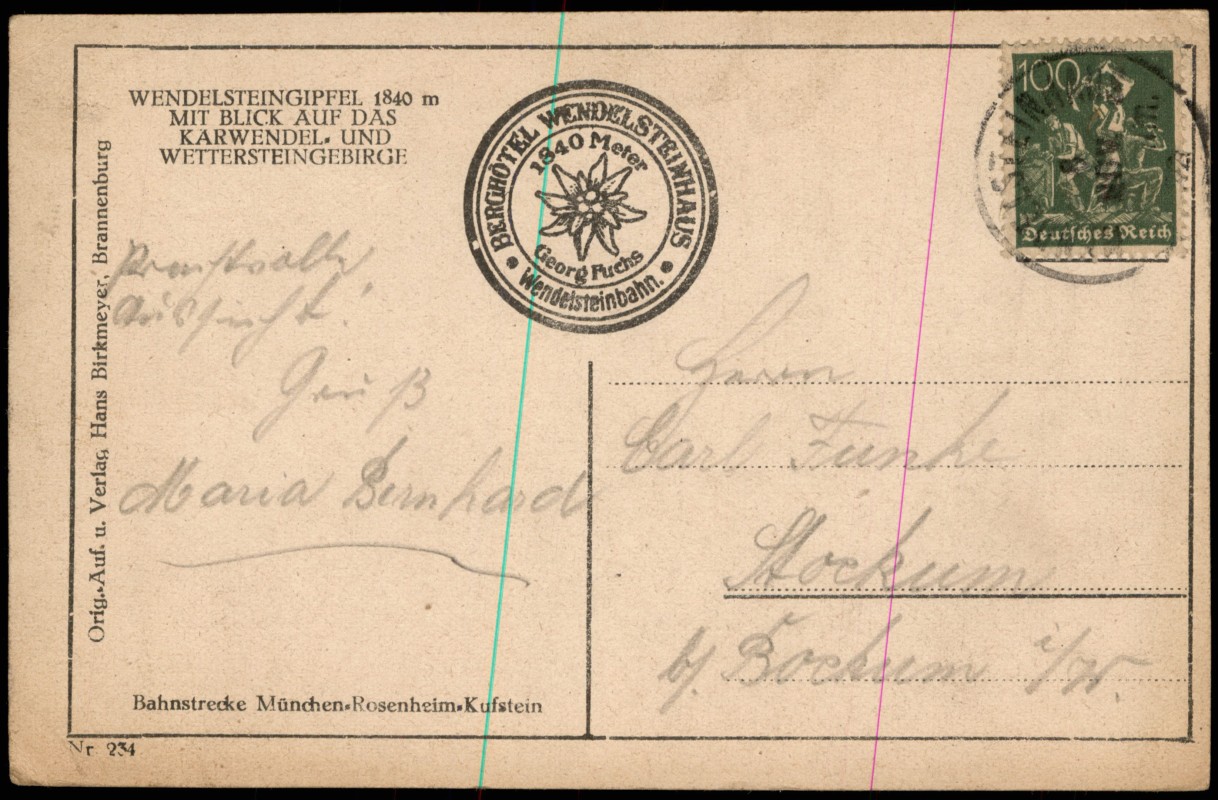 WENDELSTEINGIPFEL 1840 m
MIT BLICK AUF DAS
KARWENDEL- UND
WETTERSTEINGEBIRGE
BERGHOTEL WENDELSTEINHAUS
1840 Meter
Georg Fuchs
Wendelsteinbahn.
100
Deutsches Reich
Aussicht!
Gruß
Maria Bernhard
Herrn
Carl Funke
Stockum
b/ Bochum i/W.
Orig.-Auf. u. Verlag Hans Birkmeyer, Brannenburg
Bahnstrecke München-Rosenheim-Kufstein
Nr. 234